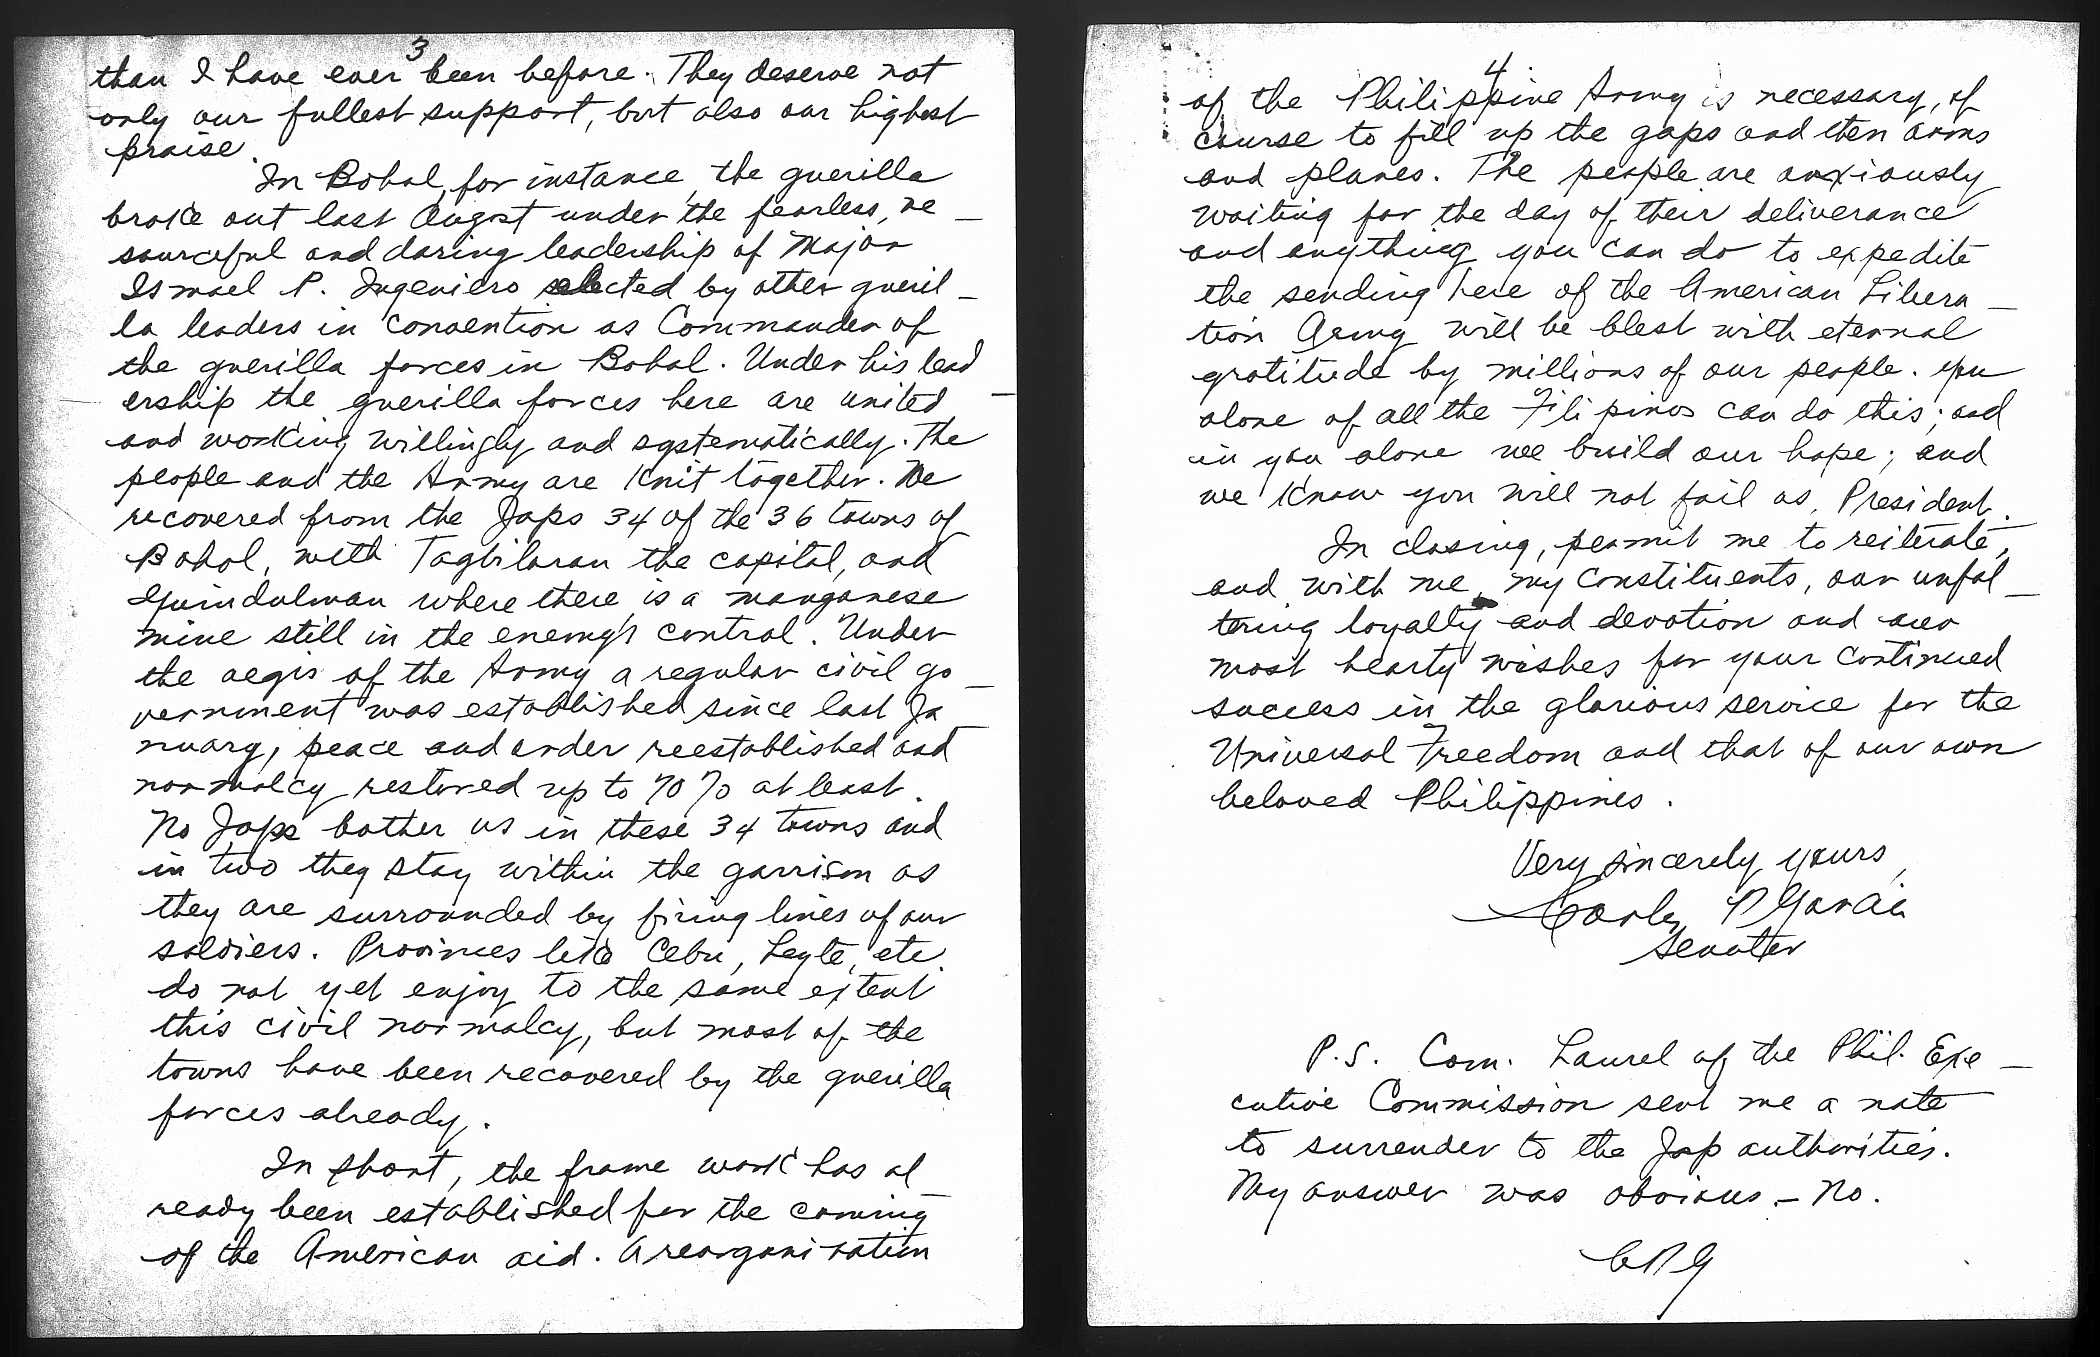 3
than I have ever been before. They deserve not
only our fullest support, but also our highest
praise.
In Bohol, for instance, the guerilla
broke out last August under the fearless, re_
sourceful and daring leadership of Major
Ismael P. Ingeniero selected by other gueril_
la leaders in convention as Commander of
the guerilla forces in Bohol. Under his lead_
ership the guerilla forces here are united
and working willingly and systematically. The
people and the Army are knit together. We
recovered from the Japs 34 of the 36 towns of
Bohol, with Tagbilaran the capital, and
Guindulman where there is a manganese
mine still in the enemy's control. Under
the aegis of the Army a regular civil go_
vernment was established since last Ja_
nuary, peace and order reestablished and
normalcy restored up to 70% at least.
No Japs bother us in these 34 towns and
in two they stay within the garrison as
they are surrounded by firing lines of our
soldiers. Provinces like Cebu, Leyte, etc.
do not yet enjoy to the same extent
this civil normalcy, but most of the
towns have been recovered by the guerilla
forces already.
In short, the frame work has al_
ready been established for the coming
of the American aid. A reorganization
4.
of the Philippine Army is necessary, of
course to fill up the gaps and then arms
and planes. The people are anxiously
waiting for the day of their deliverance
and anything you can do to expedite
the sending here of the American Libera_
tion Army will be blest with eternal
gratitude by millions of our people. You
alone of all the Filipinos can do this; and
in you alone we build our hope; and
we know you will not fail us, President.
In closing, permit me to reiterate,
and with me, my constituents, our unfal_
tering loyalty and devotion and our
most hearty wishes for your continued
success in the glorious service for the
Universal Freedom and that of our own
beloved Philippines.
Very sincerely yours,
Carlos P Garcia
Senator
P.S. Com. Laurel of the Phil. Exe_
cutive Commission sent me a note
to surrender to the Jap authorities.
My answer was obvious – No.
CPG